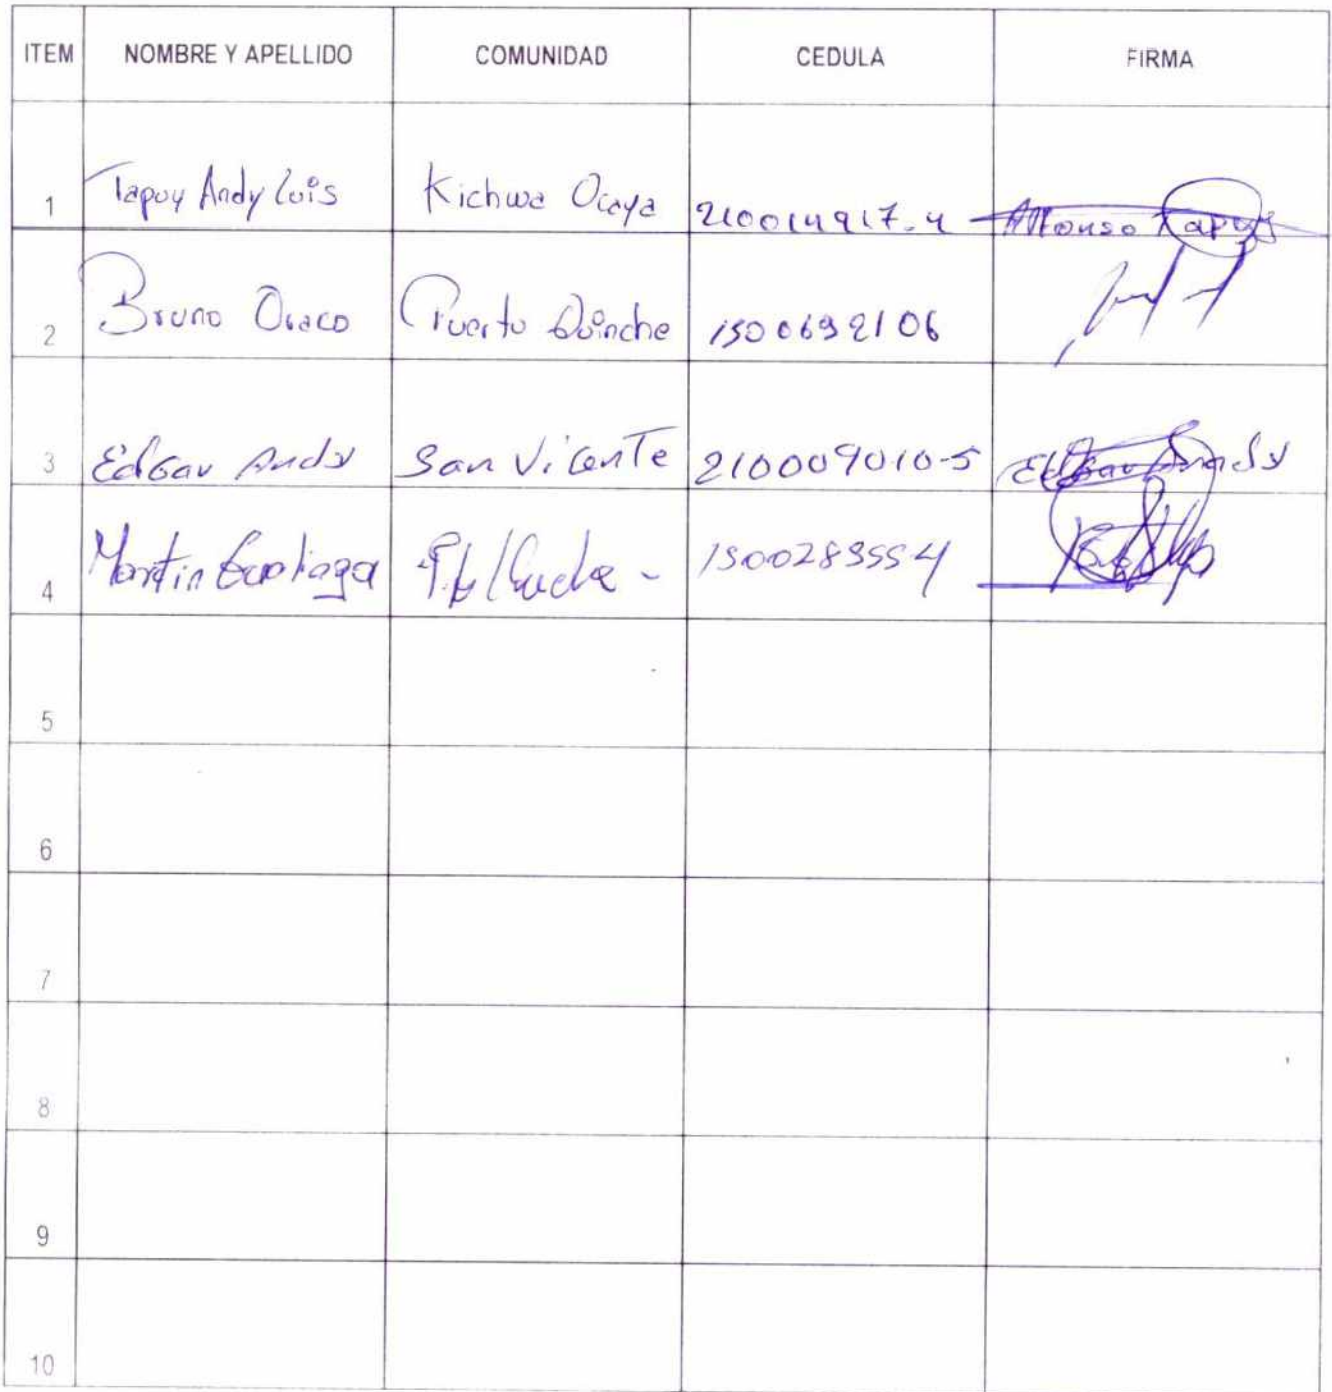 ITEM NOMBRE Y APELLIDO COMUNIDAD CEDULA FIRMA
1 Tapuy Andy Luis Kichwa Ocaya 210014917-4 Alfonso Tapuy
2 Bruno Puerto Quinche 1500692106
3 Edgar Andy San Vicente 210009010-5 Edgar Andy
4 Martin 1500283554
5
6
7
8
9
10